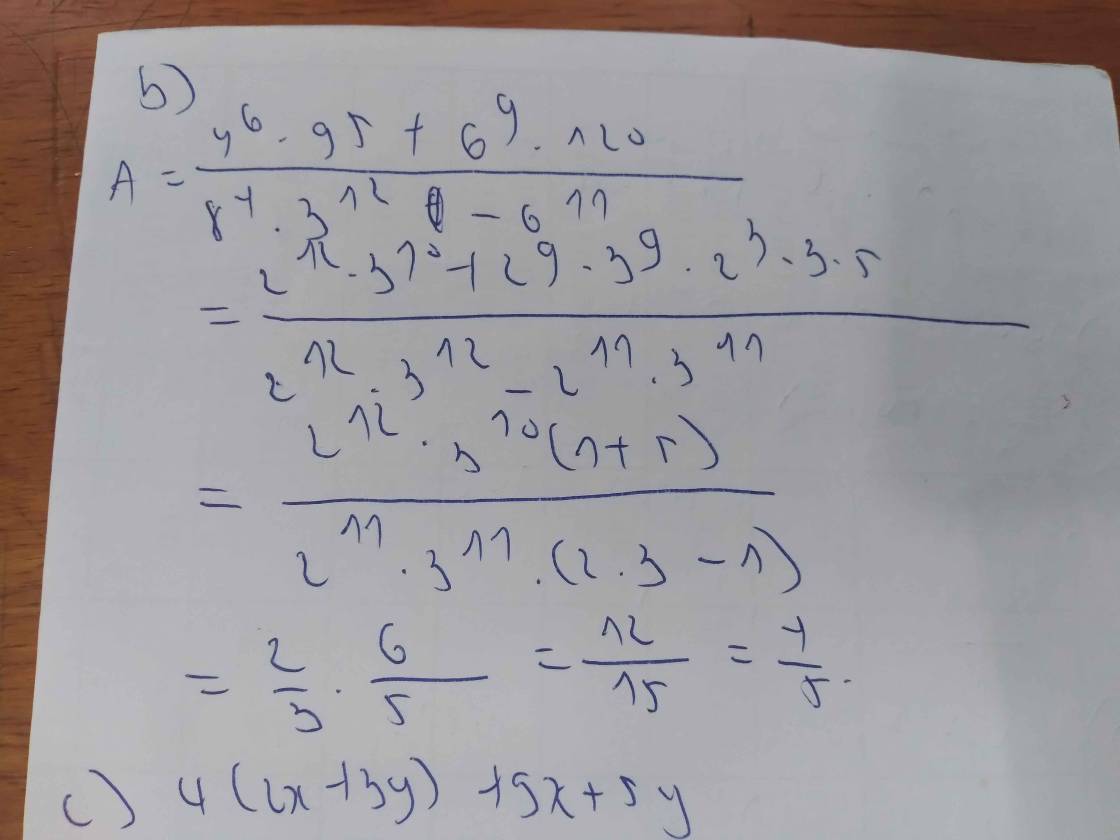 b)
A = \frac{4^6 \cdot 9^5 + 6^9 \cdot 120}{8^4 \cdot 3^{12} - 6^{11}}
= \frac{2^{12} \cdot 3^{10} + 2^9 \cdot 3^9 \cdot 2^3 \cdot 3 \cdot 5}{2^{12} \cdot 3^{12} - 2^{11} \cdot 3^{11}}
= \frac{2^{12} \cdot 3^{10} (1 + 5)}{2^{11} \cdot 3^{11} \cdot (2 \cdot 3 - 1)}
= \frac{2}{3} \cdot \frac{6}{5} = \frac{12}{15} = \frac{4}{5}.
c) 4 (2x + 3y) + 5x + 5y